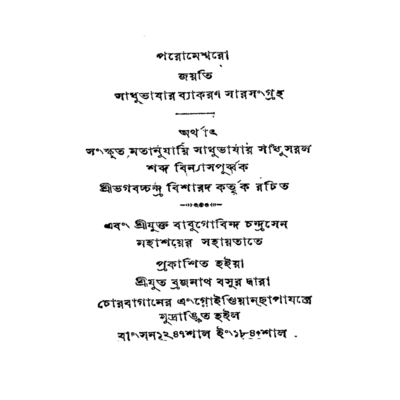 পরমেশ্বরো
জয়তি
সাধুভাষার ব্যাকরণ সারসংগ্রহ
অর্থাৎ
সংস্কৃত মতানুযায়ি সাধুভাষায় সাধুসরল
শব্দ বিন্যাসপূর্ব্বক
শ্রীভগবচ্চন্দ্র বিশারদ কর্তৃক রচিত
এবং শ্রীযুক্ত বাবুগোবিন্দ চন্দ্রসেন
মহাশয়ের সহায়তাতে
প্রকাশিত হইয়া
শ্রীযুত ব্রজনাথ বসুর দ্বারা
চোরবাগানের এংগ্লোইণ্ডিয়ান্‌ছাপাযন্ত্রে
মুদ্রাঙ্কিত হইল
বাংসন১২৪৭শাল ইং১৮৪০শাল